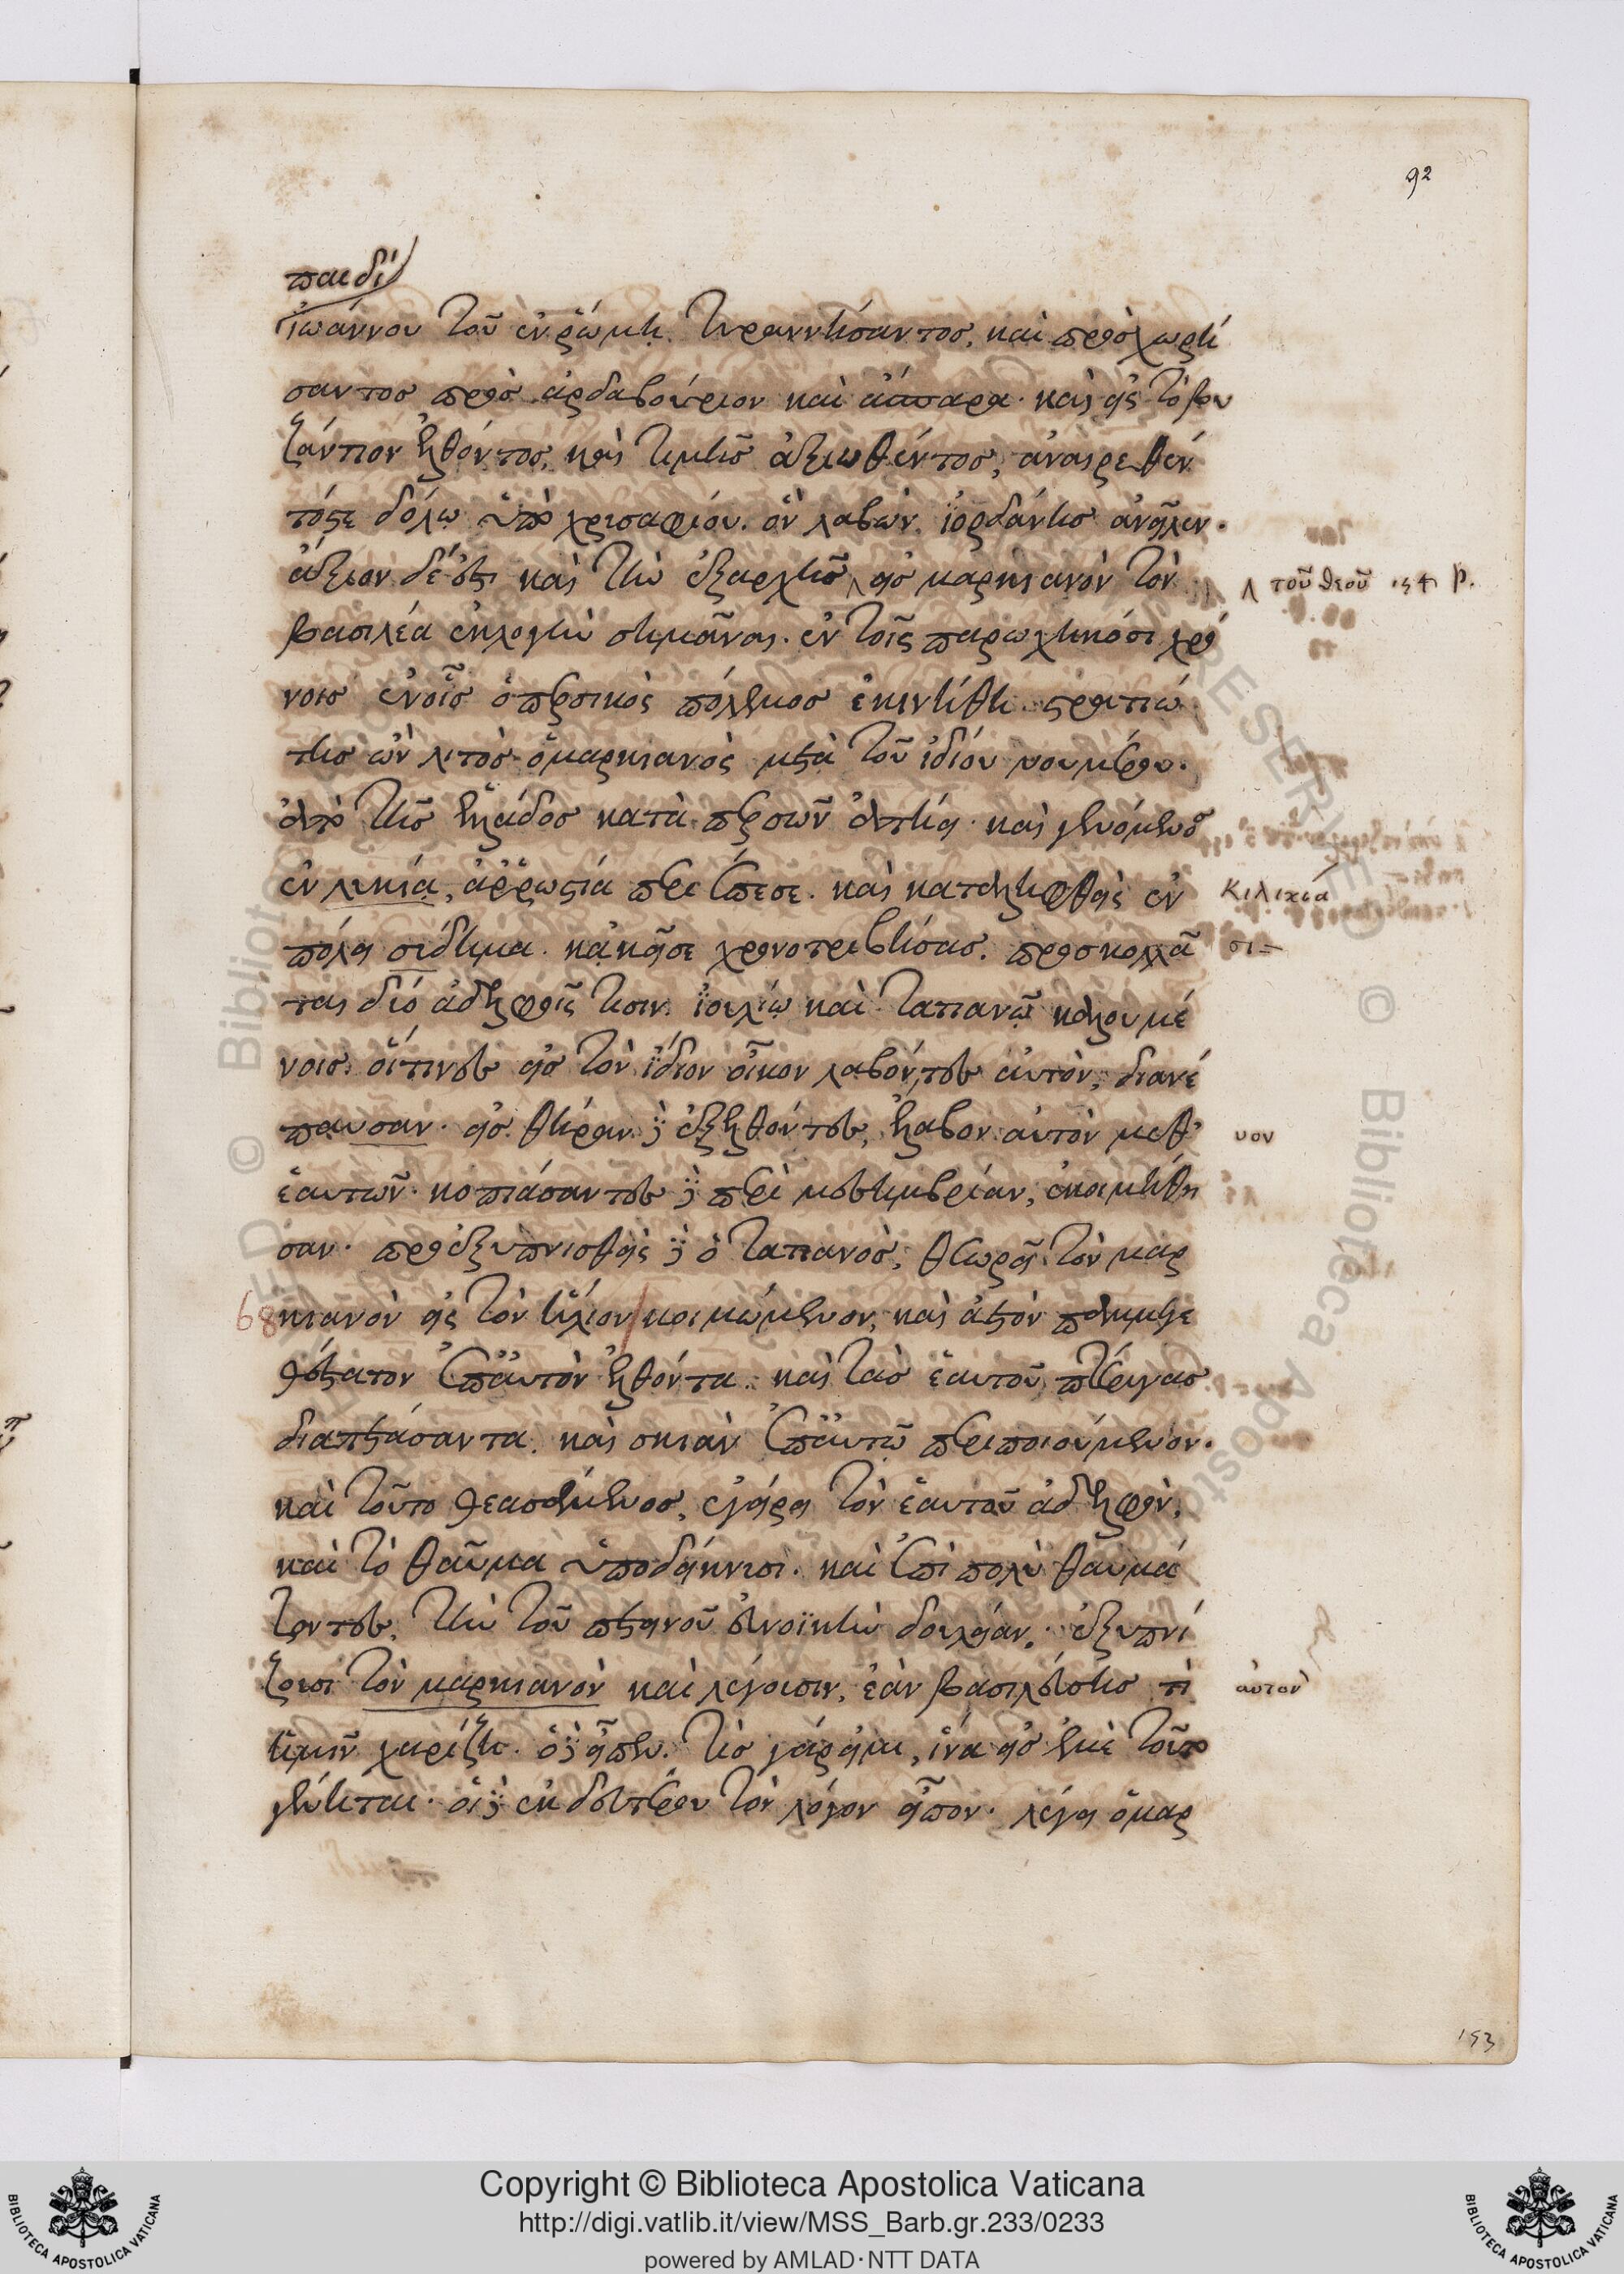 92
παιδὶ
ἰωάννου τοῦ ἐν ῥώμη τυραννήσαντος, καὶ προσχωρή
σαντος πρὸς ἀρδαβούριον καὶ ἄσπαρα. καὶ εἰς τὸ βυ
ζάντιον ἐλθόντος, καὶ τιμῆς ἀξιωθέντος, ἀναιρεθέν
τός τε δόλω ὑπὸ χρισαφίου. ὃν λαβὼν ἰορδάνης ἀνεῖλεν.
ἄξιον δέ ἐστι καὶ τὴν ἐξαρχῆς ⁁ εἰς μαρκιανὸν τὸν
⁁ τοῦ θεοῦ
βασιλέα ἐκλογὴν σημᾶναι. ἐν τοῖς παρωχηκόσι χρό
νοις ἐν οἷς ὁ περσικὸς πόλεμος ἐκινήθη. στρατιώ
της ὢν λιτὸς ὁ μαρκιανὸς μετὰ τοῦ ἰδίου νουμέρου.
ἀπὸ τῆς ἑλλάδος κατὰ περσῶν ἀπήει. καὶ γενόμενος
ἐν λυκία, ἀῤῥωστία περιέπεσε. καὶ καταλειφθεὶς ἐν
Κιλικία
πόλει σιδήμα. κἀκεῖσε χρονοτριβήσας. προσκολλᾶ
σι=
ται δυὸ ἀδελφοῖς τισιν ἰουλίω καὶ τατιανῷ καλουμέ
νοις. οἵτινες εἰς τὸν ἴδιον οἶκον λαβόντες αὐτὸν, διανέ
παυσαν. εἰς θήραν δὲ ἐξελθόντες, ἔλαβον αὐτὸν μεθ'
υον
ἑαυτῶν. κοπιάσαντες δὲ περὶ μεσημβρίαν, ἐκοιμήθη
σαν. προεξυπνισθεὶς δὲ ὁ τατιανὸς, θεωρεῖ τὸν μαρ
68 κιανὸν εἰς τὸν ἥλιον / κοιμώμενον, καὶ ἀετὸν παμμεγε
θέστατον ἐπ' αὐτὸν ἐλθόντα. καὶ τὰς ἑαυτοῦ πτέρυγας
διαπετάσαντα. καὶ σκιὰν ἐπ' αὐτῷ περιποιούμενον.
καὶ τοῦτο θεασάμενος, ἐγείρει τὸν ἑαυτοῦ ἀδελφὸν,
καὶ τὸ θαῦμα ὑποδείκνυσι. καὶ ἐπὶ πολὺ θαυμά
ζοντες, τὴν τοῦ πτηνοῦ εὐνοϊκὴν δουλείαν. ἐξυπνί
ζουσι τὸν μαρκιανὸν καὶ λέγουσιν, ἐὰν βασιλεύσης τί
αὐτὸν
ἡμῖν χαρίζη. ὁ δὲ εἶπεν. τίς γάρ εἰμι, ἵνα εἰς ἐμὲ τοῦτο
γένηται. οἱ δὲ ἐκ δευτέρου τὸν λόγον εἶπον. λέγει ὁ μαρ
153
© Biblioteca Apostolica
RESERVED © Biblioteca Apostolica
BIBLIOTECA APOSTOLICA VATICANA
Copyright © Biblioteca Apostolica Vaticana
http://digi.vatlib.it/view/MSS_Barb.gr.233/0233
powered by AMLAD·NTT DATA
BIBLIOTECA APOSTOLICA VATICANA